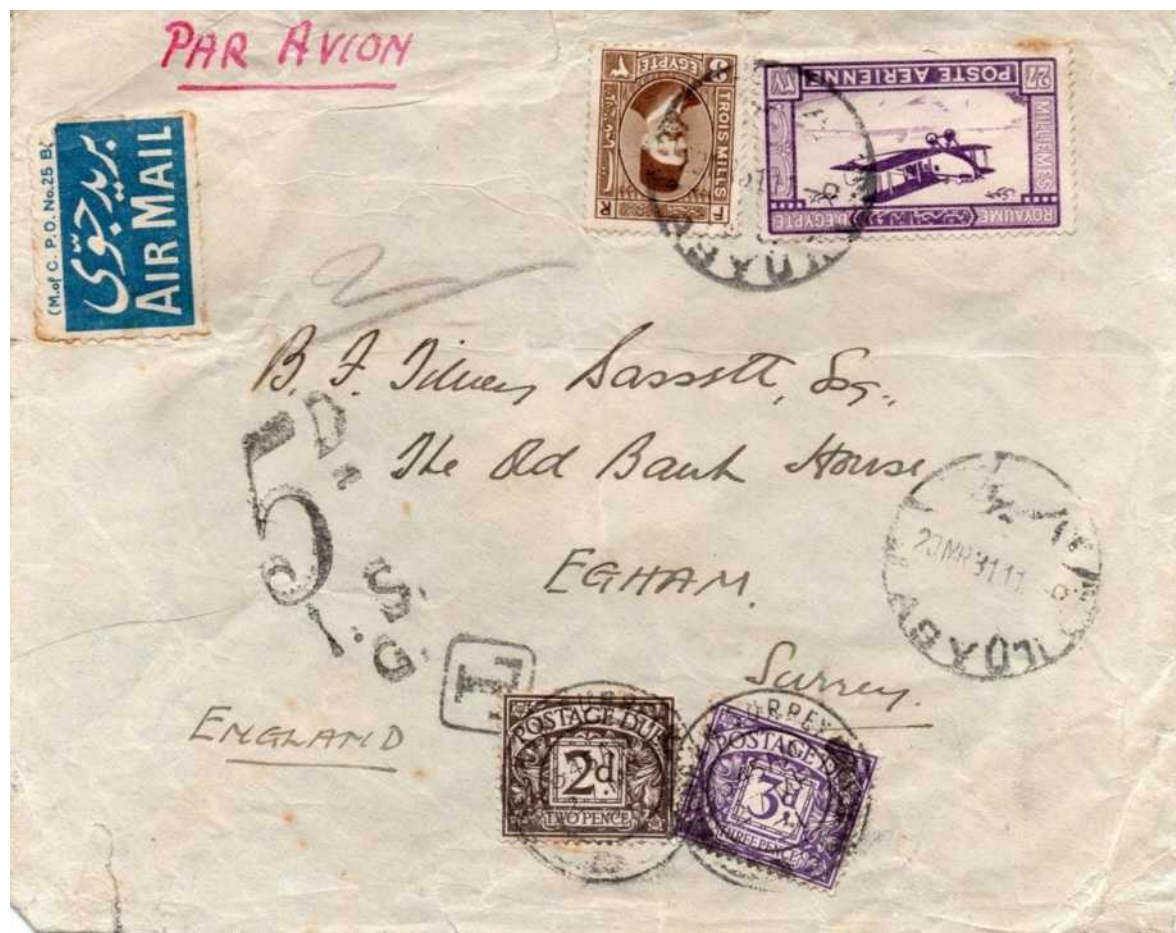 PAR AVION
(M. of C. P. O. No. 25 B.
بريد جوّى
AIR MAIL
3 EGYPTE ٣
TROIS MILLS
27 POSTE AERIENNE ٢٧
MILLIEMES
ROYAUME D'EGYPTE
ASYUT
B. F. Tilney Bassett, Esq.,
The Old Bank House
EGHAM.
Surrey.
ENGLAND
5D.
I.S.G.
T
ASYUT
MR 31 11
POSTAGE DUE
2d.
TWO PENCE
SURREY
POSTAGE DUE
3d.
THREE PENCE